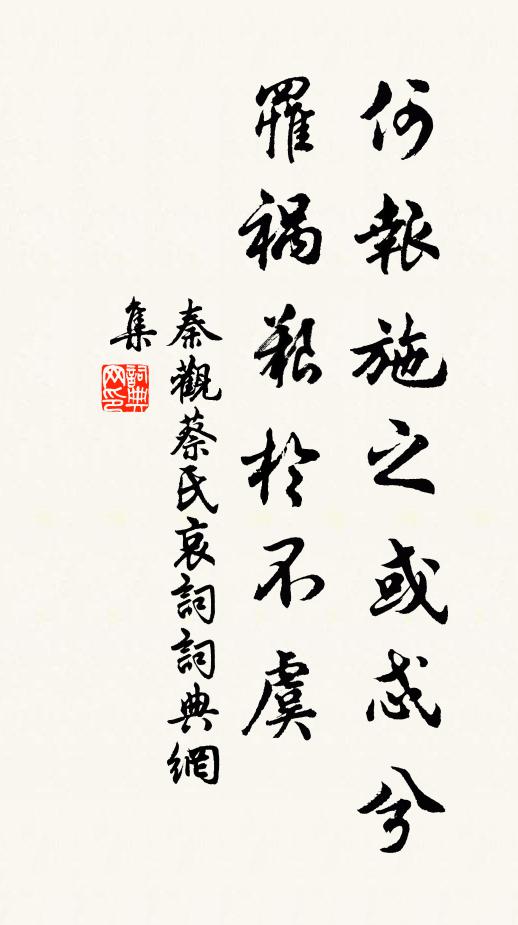 何報施之或忒兮
罹禍艱於不虞
秦觀蔡氏哀詞詞典網
集
詞典
网印